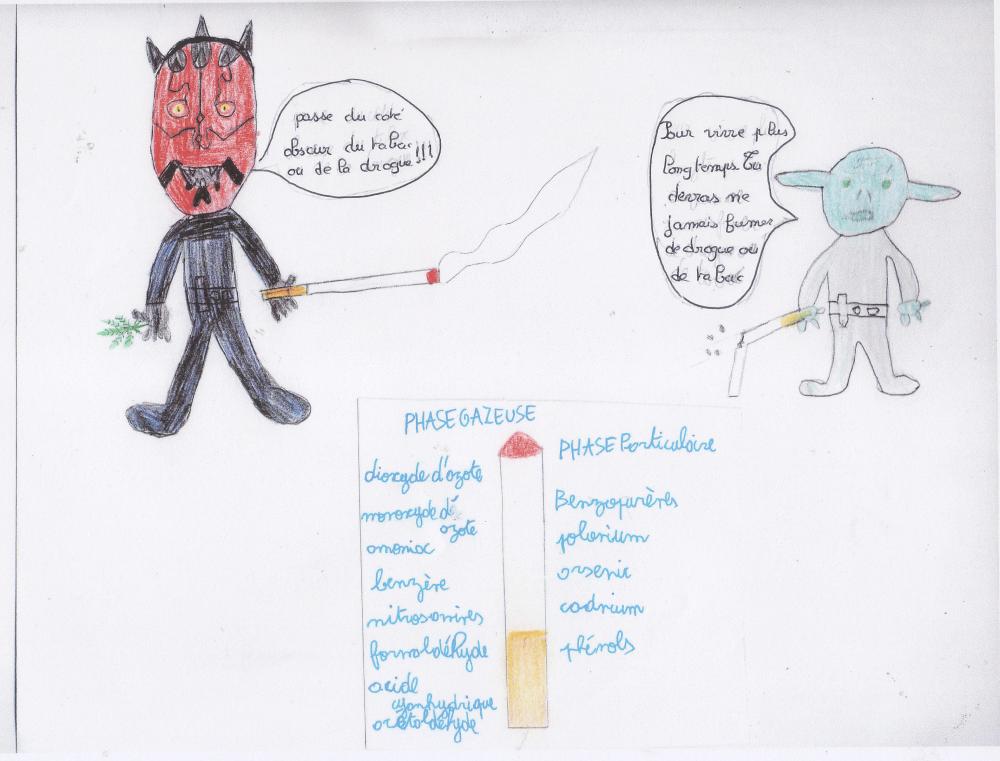 passe du coté
obscur du tabac
ou de la drogue !!!
Pour vivre plus
longtemps Tu
devras ne
jamais fumer
de drogue ou
de tabac
PHASE GAZEUSE
dioxyde d'azote
monoxyde d'
azote
amoniac
benzène
nitrosamines
formaldéhyde
acide
cyanhydrique
acétaldéhyde
PHASE Particulaire
Benzopyrènes
polonium
arsenic
cadnium
phénols